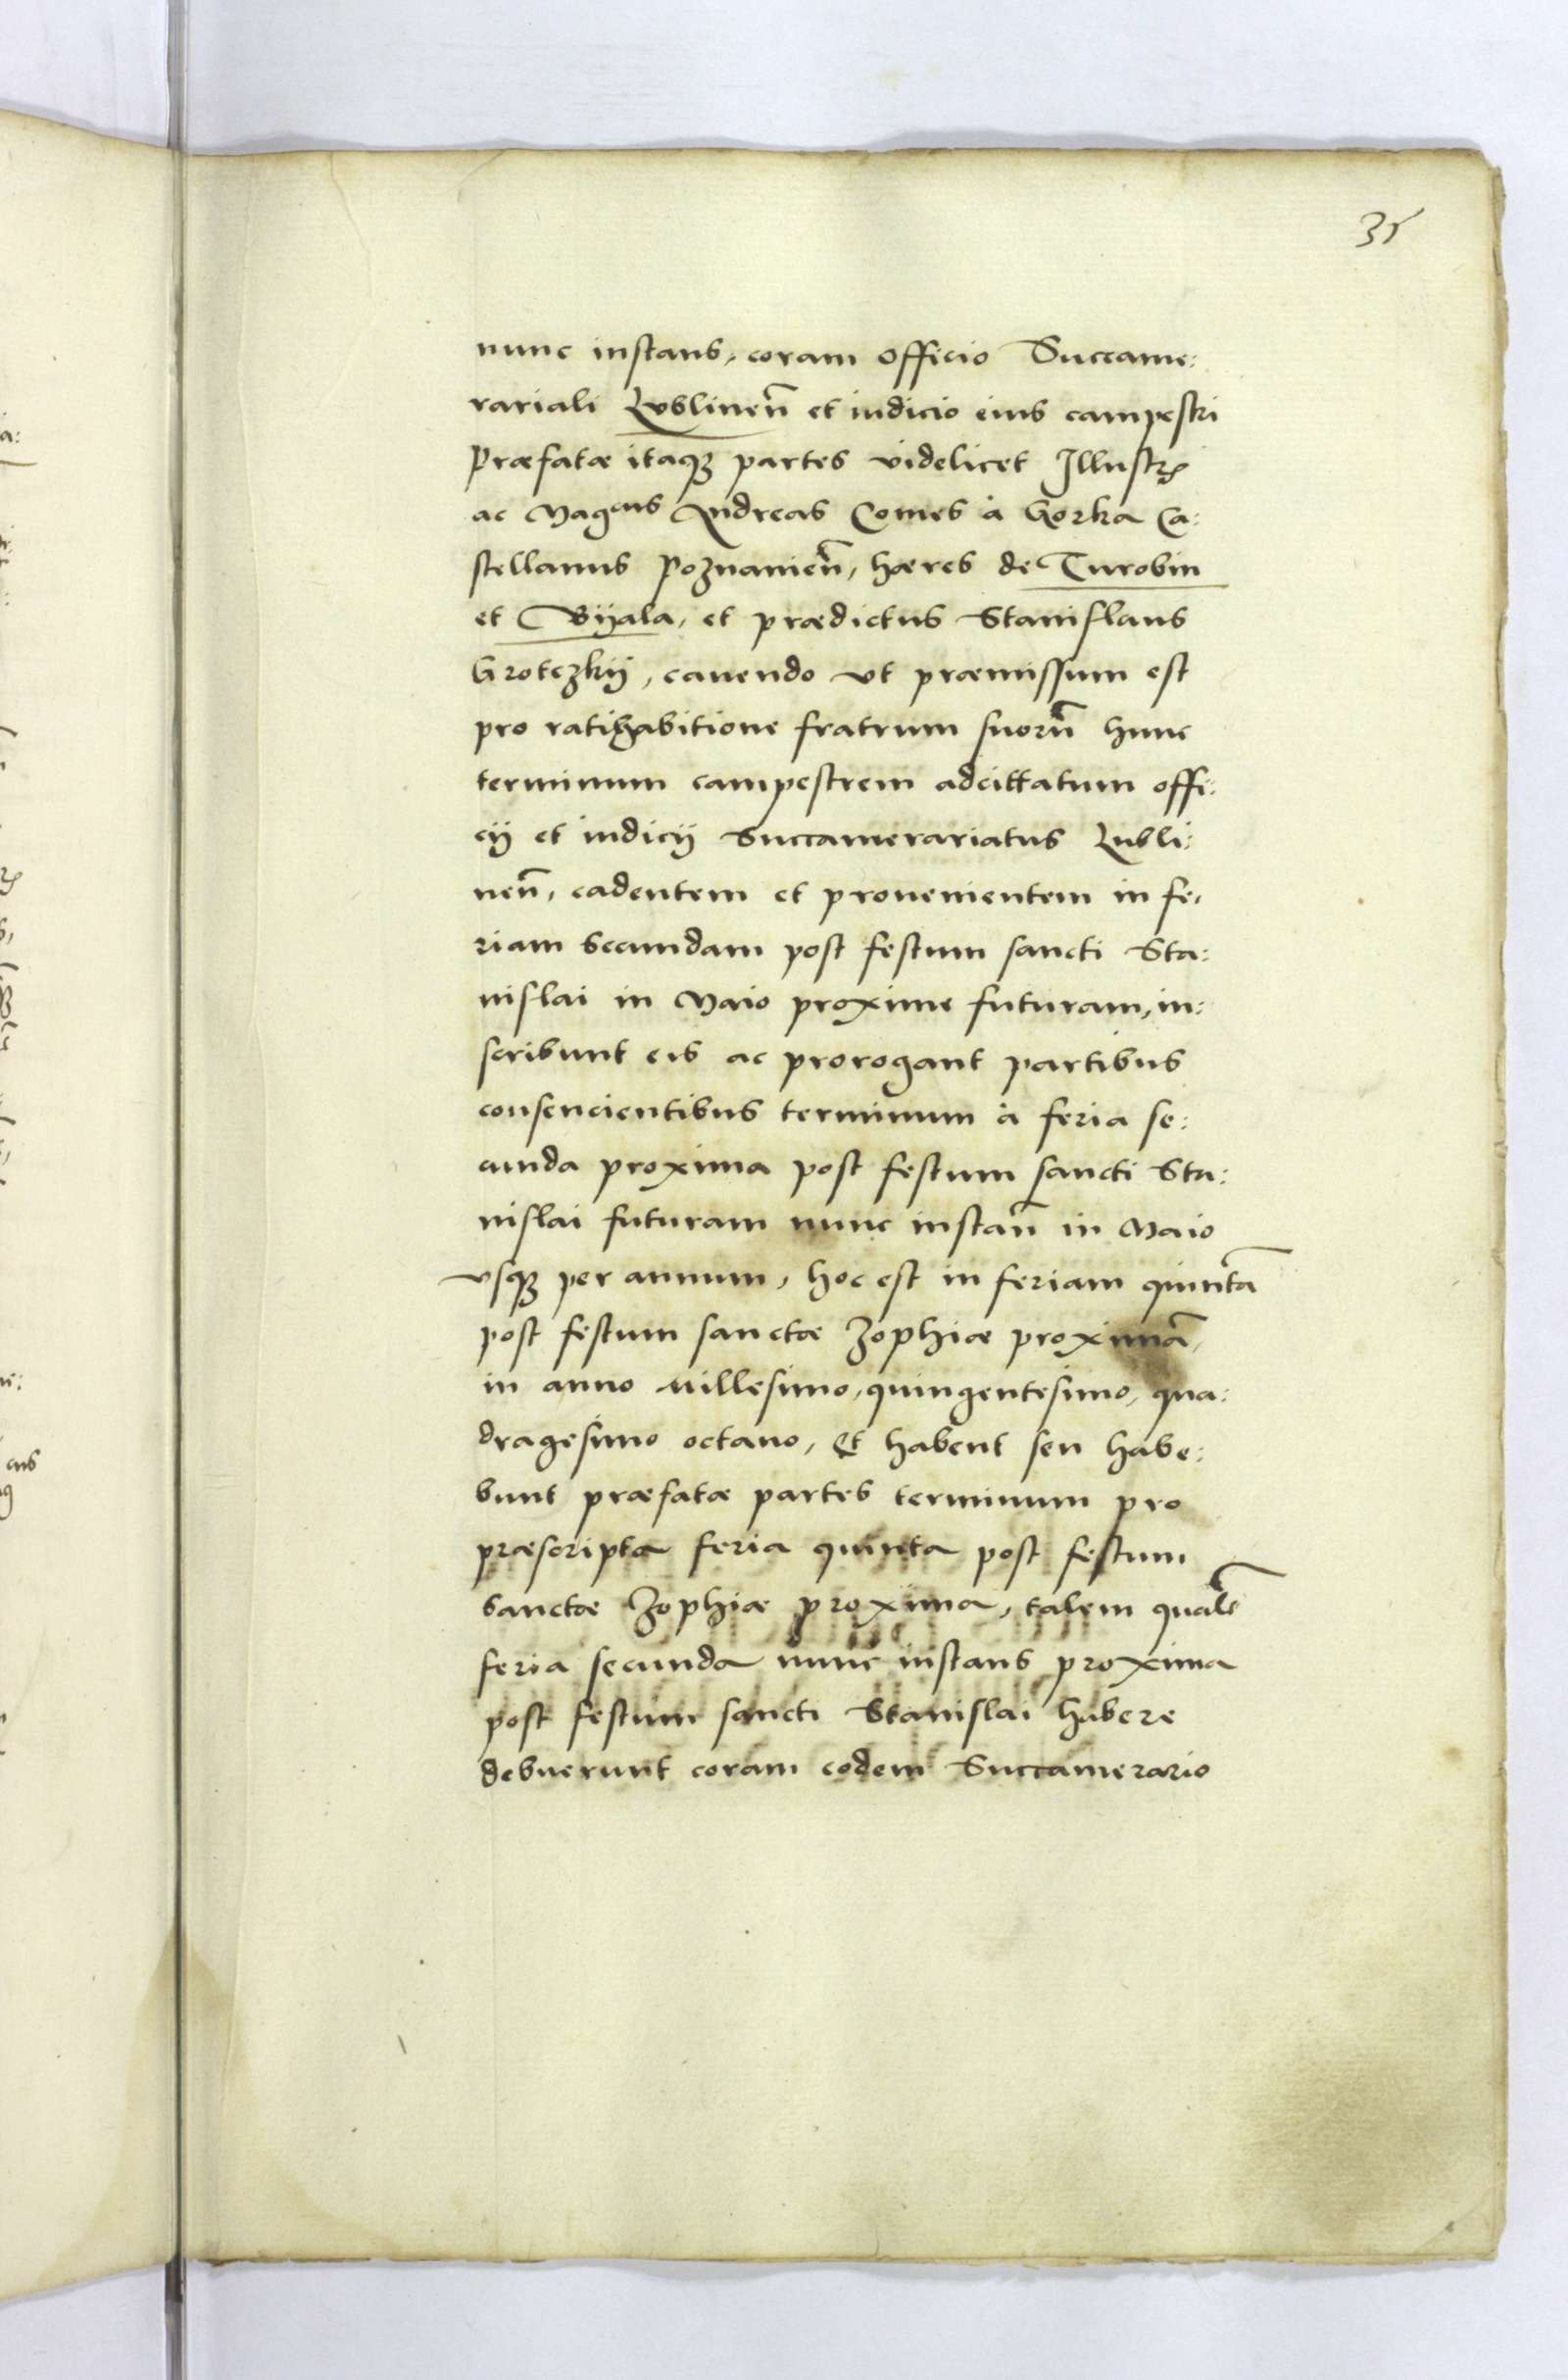 35
nunc instans, coram officio Succame:
rariali Lublineñ et iudicio eius campestri
Præfatæ itaq₃ partes videlicet Illustr̃
ac Magcus Andreas Comes à Gorka Ca:
stellanus Poznanieñ, hæres de Turobin
et Bijala, et prædictus Stanislaus
Grotczkij, cauendo vt præmissum est
pro ratihabitione fratrum suorũ hunc
terminum campestrem adcittatum offi:
cij et iudicij Succamerariatus Lubli:
neñ, cadentem et prouenientem in fe,
riam secundam post festum sancti Sta:
nislai in Maio proxime futuram, in:
scribunt eis ac prorogant partibus
consencientibus terminum à feria se:
cunda proxima post festum sancti Sta:
nislai futuram nunc instañ in Maio
vsq₃ per annum, hoc est in feriam quintã
post festum sanctæ Zophiæ proximã,
in anno millesimo, quingentesimo, qua:
dragesimo octauo, Et habent seu habe:
bunt præfatæ partes terminum pro
præscripta feria quinta post festum
sanctæ Zophiæ proxima, talem qualẽ
feria secunda nunc instans proxima
post festum sancti Stanislai habere
debuerunt coram eodem Succamerario